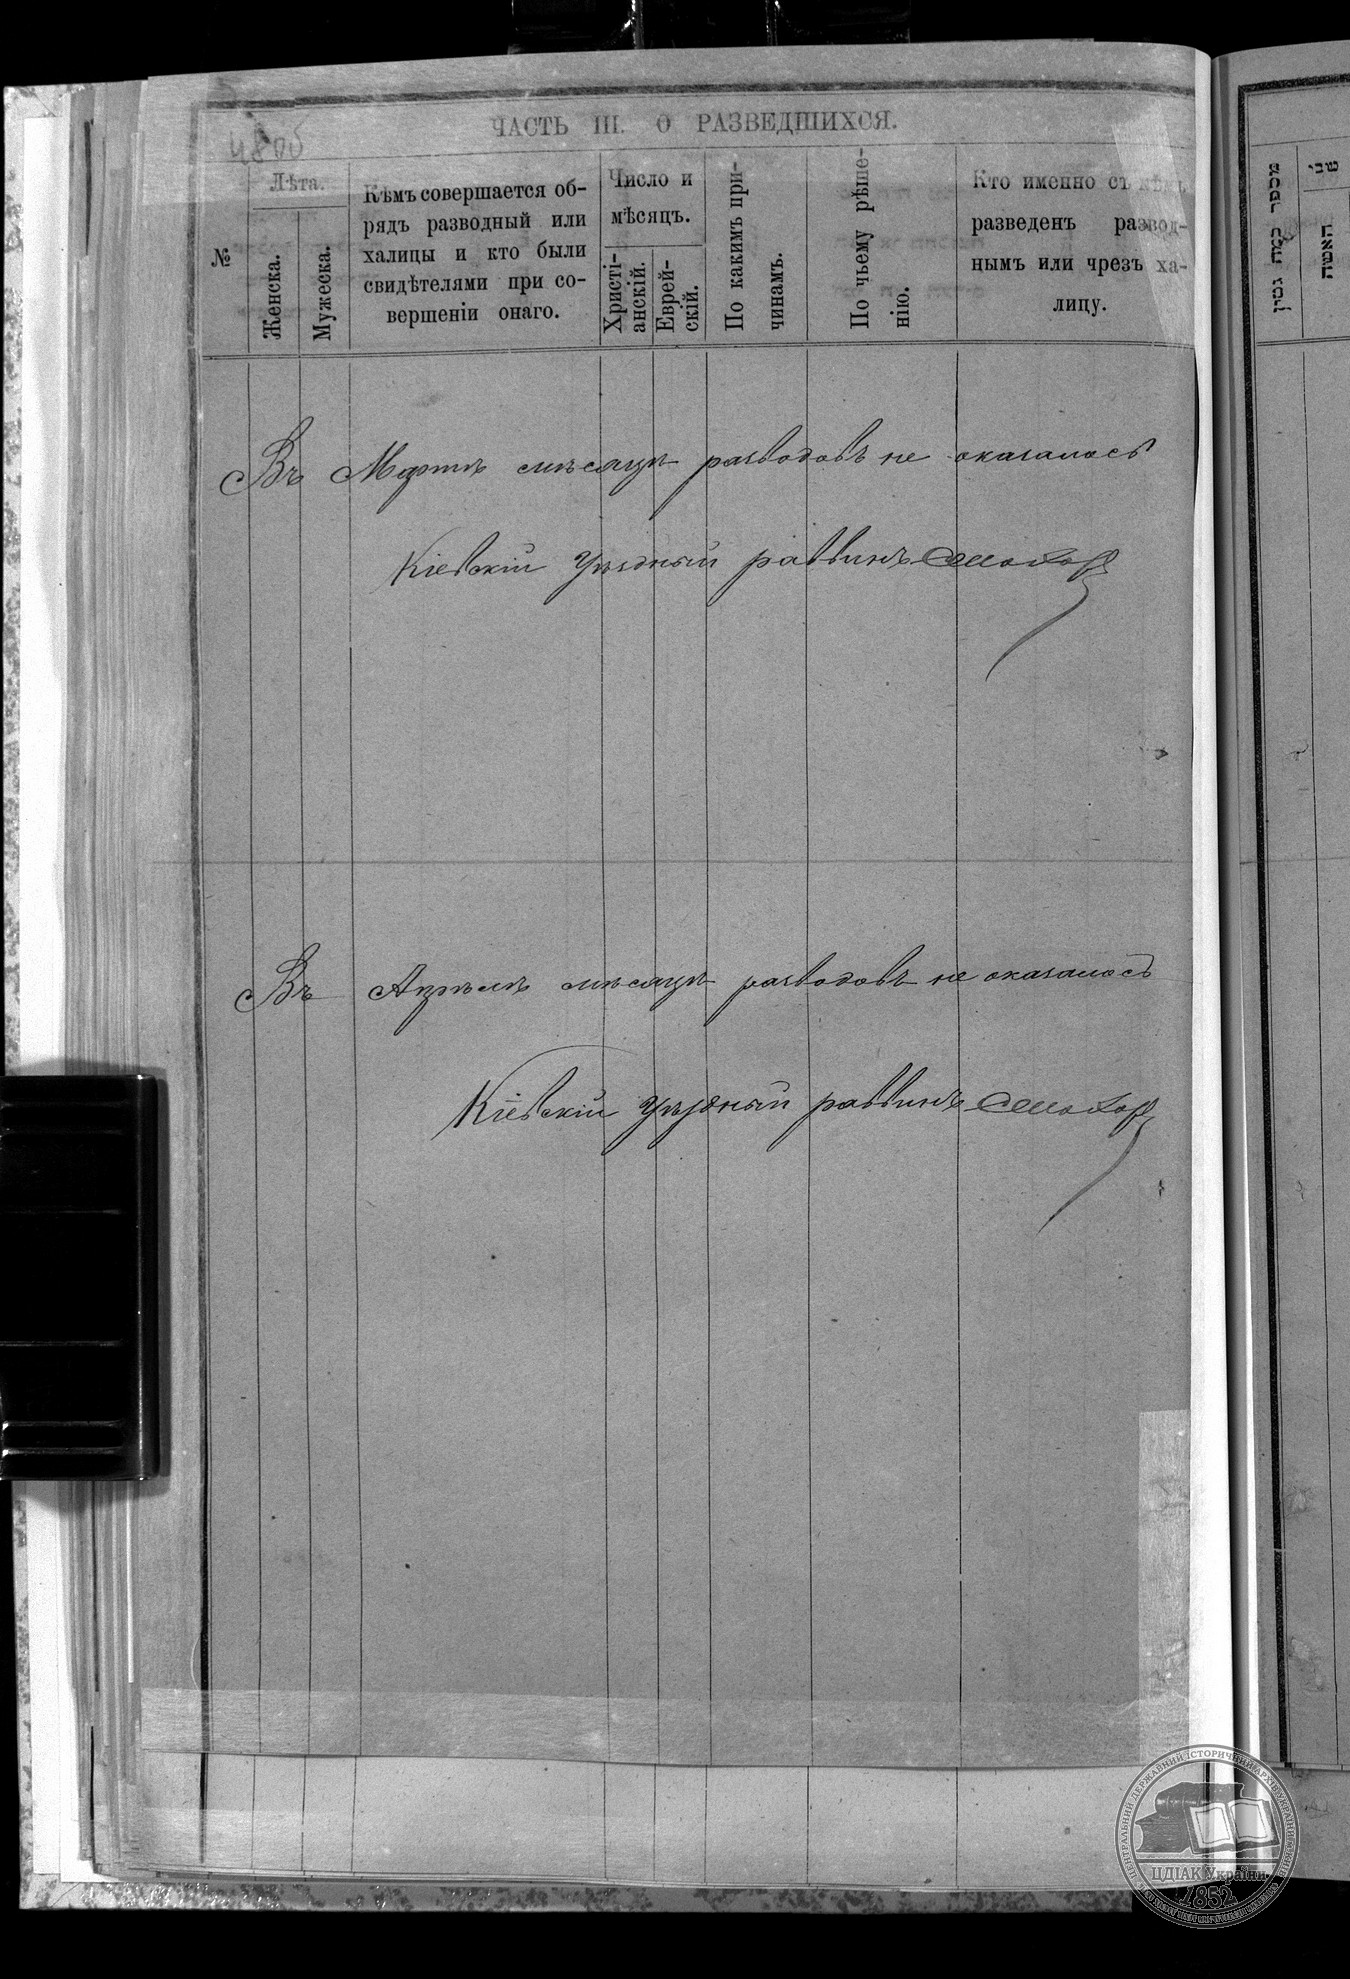 48 об
ЧАСТЬ III. О РАЗВЕДШИХСЯ.
№
Лѣта.
Женска.
Мужеска.
Кѣмъ совершается об-
рядъ разводный или
халицы и кто были
свидѣтелями при со-
вершеніи онаго.
Число и
мѣсяцъ.
Христі-
анскій.
Еврей-
скій.
По какимъ при-
чинамъ.
По чьему рѣше-
нію.
Кто именно съ кѣмъ
разведенъ развод-
нымъ или чрезъ ха-
лицу.
Въ Мартѣ мѣсяцѣ разводовъ не оказалось
Кіевскій Уѣздный раввинъ
Въ Апрѣлѣ мѣсяцѣ разводовъ не оказалось
Кіевскій Уѣздный раввинъ
מספר כמה גטין
האשה
ЦЕНТРАЛЬНИЙ ДЕРЖАВНИЙ ІСТОРИЧНИЙ АРХІВ УКРАЇНИ
ЦДІАК України
1852